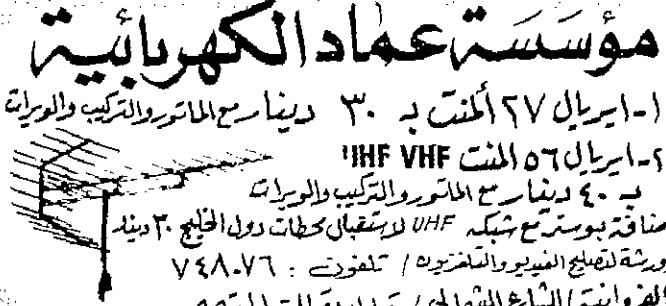 مؤسسة عماد الكهربائية
١- ايريال ٢٧ ألمنت بـ ٣٠ دينار مع الماتور والتركيب والويرات
٢- ايريال ٥٦ المنت UHF VHF
بـ ٤٠ دينار مع الماتور والتركيب والويرات
بوستر مع شبكه UHF لاستقبال محطات دول الخليج ٣٠ دينار
ورشة لتصليح الفيديو والتلفزيون / تلفون : ٧٤٨٠٧٦
الشارع الشمالي